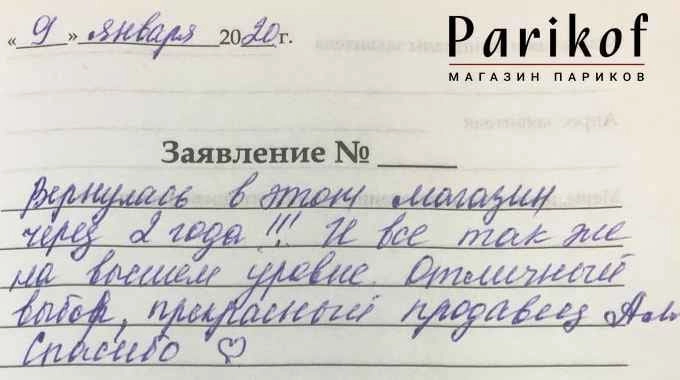 « 9 » января 2020 г.
Parikof
МАГАЗИН ПАРИКОВ
Заявление №
Вернулась в этот магазин
через 2 года!!! И все так же
на высшем уровне. Отличный
выбор, прекрасный продавец
Спасибо ♡